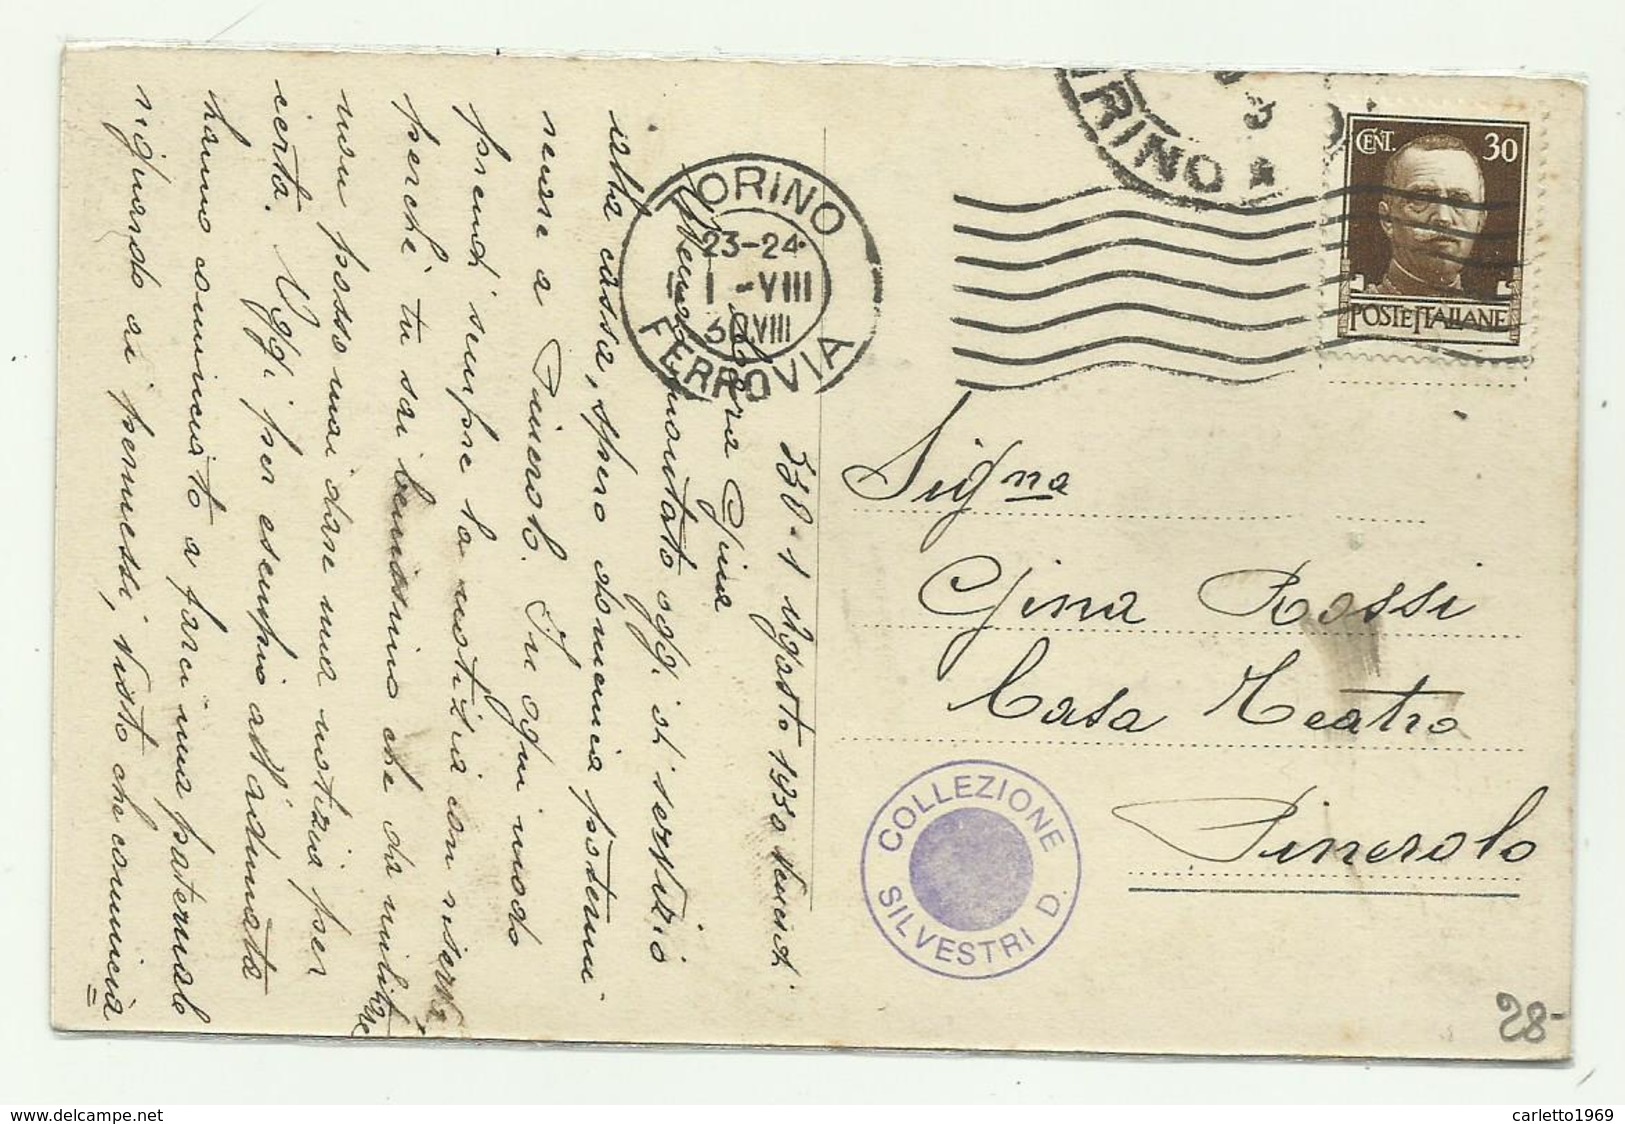 TORINO
23-24
1 -VIII
30 VIII
FERROVIA
TORINO
CENT. 30
POSTE ITALIANE
330 - 1 Agosto 1930 Venerdì
Cara Gina
smontato oggi di servizio
alla cassa, spero domenica potermi
recare a Pinerolo. In ogni modo
prendi sempre la notizia con riserva,
perchè tu sai benissimo che da militare
non posso mai dare una notizia per
certa. Oggi per esempio all'adunata
hanno cominciato a farci una paternale
riguardo ai permessi, visto che comincia
Signa
Gina Rossi
Casa Teatro
Pinerolo
COLLEZIONE
SILVESTRI D.
28-
www.delcampe.net
carletto1969